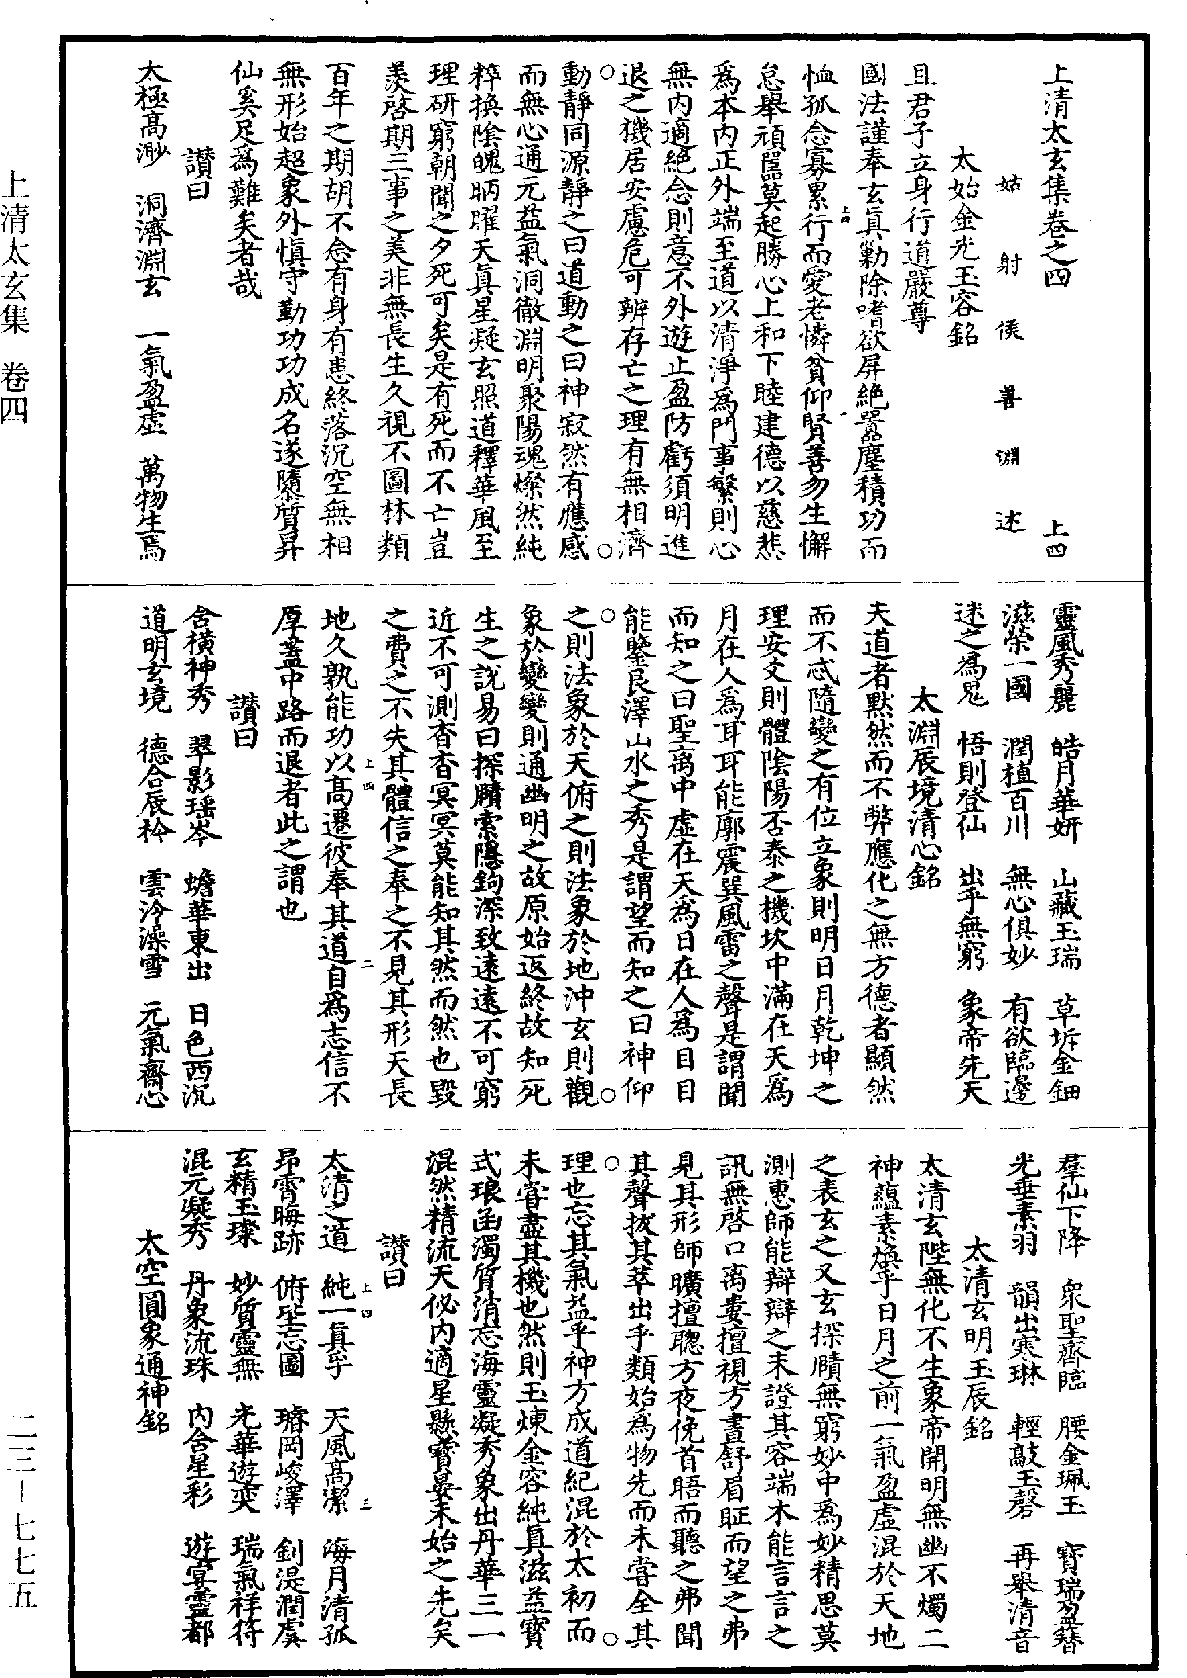 上清太玄集卷之四　上四
姑射侯善淵述
太始金光玉容銘
且君子立身行道嚴尊
國法謹奉玄真勦除嗜欲屏絕囂塵積功而
恤孤念寡累行而愛老憐貧仰賢善勿生懈
怠舉頑嚚莫起勝心上和下睦建德以慈悲
為本內正外端至道以清淨為門事繁則心
無內適絕念則意不外遊止盈防虧須明進
退之機居安慮危可辨存亡之理有無相濟
動靜同源靜之曰道動之曰神寂然有應感
而無心通元益氣洞徹淵明聚陽魂燦然純
粹換陰魄昞曜天真星凝玄照道釋華風至
理研窮朝聞之夕死可矣是有死而不亡豈
羨啓期三事之美非無長生久視不圖林類
百年之期胡不念有身有患終落沉空無相
無形始超象外慎守勤功功成名遂隳質昇
仙奚足為難矣者哉
讚曰
太極高渺　洞濟淵玄　一氣盈虛　萬物生焉
靈風秀麗　皓月華妍　山藏玉瑞　草坼金鈿
滋榮一國　潤植百川　無心俱妙　有欲臨邊
迷之為鬼　悟則登仙　出乎無窮　象帝先天
太淵辰境清心銘
夫道者默然而不弊應化之無方德者顯然
而不忒隨變之有位立象則明日月乾坤之
理安爻則體陰陽否泰之機坎中滿在天為
月在人為耳耳能廓震巽風雷之聲是謂聞
而知之曰聖离中虛在天為日在人為目目
能鑒艮澤山水之秀是謂望而知之曰神仰
之則法象於天俯之則法象於地沖玄則觀
象於變變則通幽明之故原始返終故知死
生之說易曰探賾索隱鉤深致遠遠不可窮
近不可測杳杳冥冥莫能知其然而然也毀
之費之不失其體信之奉之不見其形天長
地久孰能功以高遷彼奉其道自為志信不
厚蓋中路而退者此之謂也
讚曰
含橫神秀　翠影瑶岑　蟾華東出　日色西沉
道明玄境　德合辰衿　雲泠澡雪　元氣齋心
羣仙下降　衆聖齊臨　腰金珮玉　寶瑞簪
光垂素羽　韻出寒琳　輕敲玉磬　再舉清音
太清玄明玉辰銘
太清玄陛無化不生象帝開明無幽不燭二
神蘊素煥乎日月之前一氣盈虛混於天地
之表玄之又玄探賾無窮妙中為妙精思莫
測惠師能辯辯之未證其容端木能言言之
訊無啓口离婁擅視方晝舒眉眐而望之弗
見其形師曠擅聰方夜俛首晤而聽之弗聞
其聲拔其萃出乎類始為物先而未嘗全其
理也忘其氣益乎神方成道紀混於太初而
未嘗盡其機也然則玉煉金容純真滋益寶
式琅函濁質消忘海靈凝秀象出丹華三一
混然精流天佖內適星懸寶晏未始之先矣
讚曰
太清之道　純一真孚　天風高潔　海月清孤
昂霄晦跡　俯坐忘圖　瑃岡峻澤　釗湜潤虞
玄精玉璨　妙質靈無　光華遊奕　瑞氣祥符
混元凝秀　丹象流珠　內含星彩　遊宴靈都
太空圓象通神銘
上清太玄集　卷四
二三—七七五